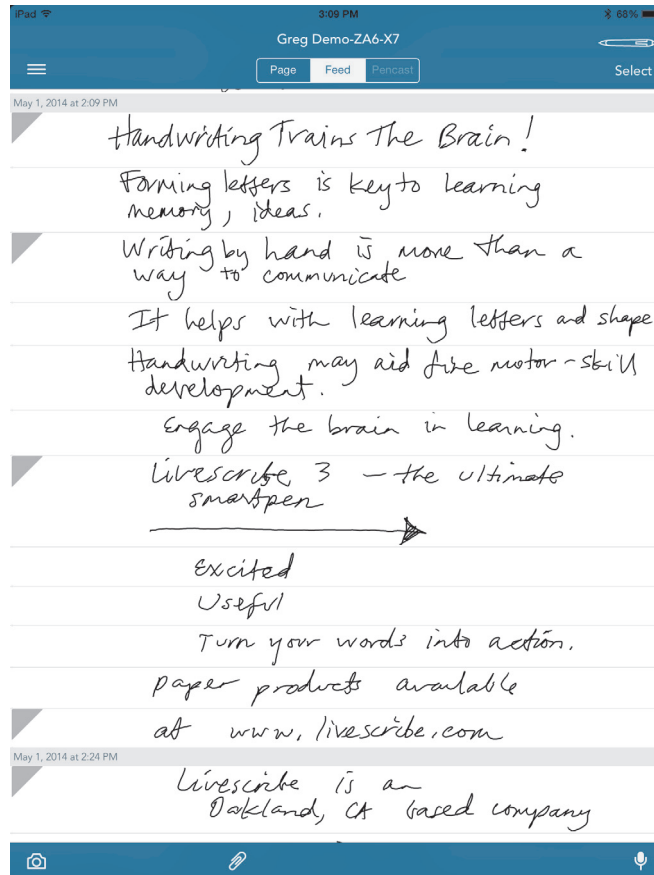 iPad 3:09 PM 68%
Greg Demo-ZA6-X7
Page Feed Pencast Select
May 1, 2014 at 2:09 PM
Handwriting Trains The Brain!
Forming letters is key to learning
memory, ideas.
Writing by hand is more than a
way to communicate
It helps with learning letters and shape
Handwriting may aid fine motor-skill
development.
Engage the brain in learning.
Livescribe 3 - the ultimate
smartpen
Excited
Useful
Turn your words into action.
paper products available
at www.livescribe.com
May 1, 2014 at 2:24 PM
Livescribe is an
Oakland, CA based company